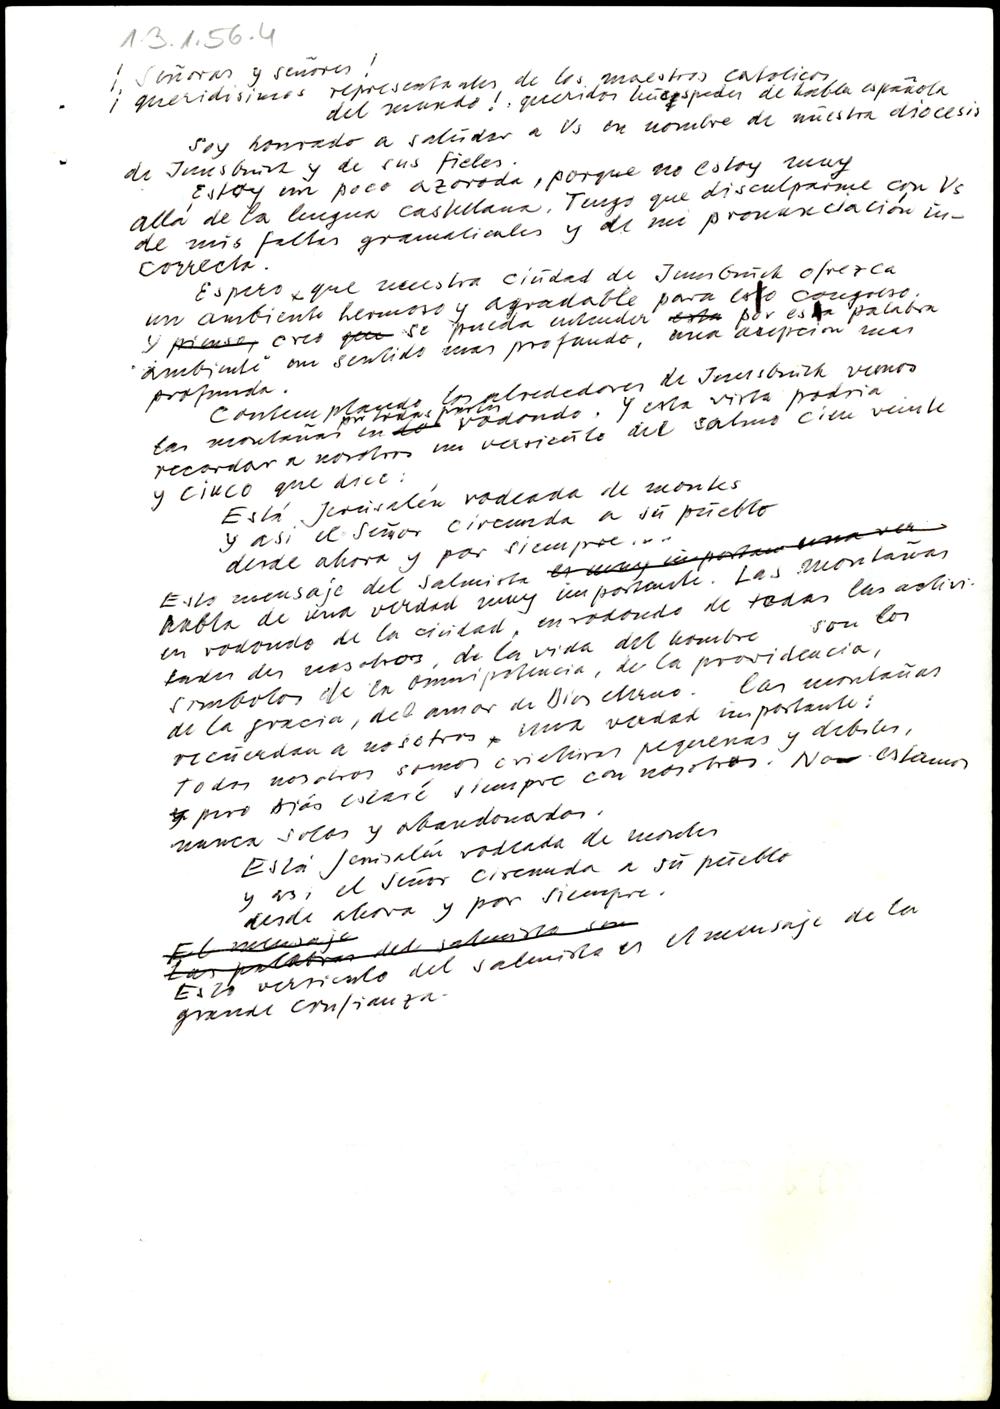 1.3.1.56.4
¡ Señoras y señores !
¡ queridisimos representantes de los maestros catolicos
del mundo ! queridos huespedes de habla española
Soy honrado a saludar a Vs en nombre de nuestra diocesis
de Innsbruck y de sus fieles.
Estoy un poco azorado, porque no estoy muy
allá de la lengua castellana. Tengo que disculparme con Vs
de mis faltas gramaticales y de mi pronunciación in-
correcta.
Espero que nuestra ciudad de Innsbruck ofrezca
un ambiente hermoso y agradable para esto congreso.
Y pienso, creo que se pueda entender esta por esta palabra
"ambiente" un sentido mas profundo, una acepción mas
profunda.
Contemplando los alrededores de Innsbruck vemos
por todas partes
las montañas en los rodondo. Y esta vista podria
recordar a nosotros un versiculo del salmo cien veinte
y cinco que dice:
Está Jerusalén rodeada de montes
y asi el Señor circunda a su pueblo
desde ahora y por siempre...
Esto mensaje del salmista es muy important una ver
habla de una verdad muy importante. Las montañas
en rodondo de la ciudad, en rodondo de todas las activi-
tades des nosotros, de la vida del hombre son los
simbolos de la omnipotencia, de la providencia,
de la gracia, del amor de Dios eterno. Las montañas
recuerdan a nosotros una verdad importante:
Todos nosotros somos criaturas pequeñas y debiles,
y pero Diós estaré siempre con nosotros. No estamos
nunca solos y abandonados.
Está Jerusalén rodeada de montes
y asi el Señor circunda a su pueblo
desde ahora y por siempre.
El mensaje
Las palabras del salmista son
Esto versiculo del salmista es el mensaje de la
grande confianza.